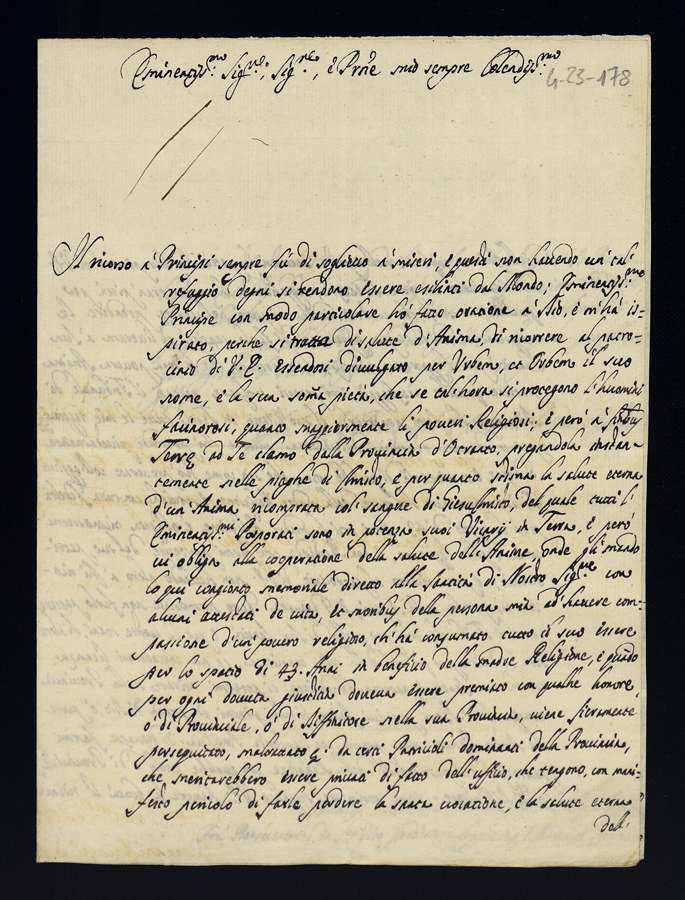 Eminentiss.mo Sig.re, Sig.re, è Pñe mio sempre Colendiss.mo
4-23-178
Il ricorso a' Principi sempre fù di soglietto a' miseri, e questi non havendo un tal'
refuggio degni si rendono essere estinti dal Mondo; Eminentiss.mo
Principe con modo particolare hò fatto oratione à Dio, è m'hà is=
pirato, perche si tratta di salute d'Anima, di ricorrere al patro=
cinio di V. E. Essendosi divulgato per Urbem, et Orbem il suo
nome, è la sua som̃a pietà, che se tal'hora si protegono l'huomini
facinorosi, quanto maggiormente li poveri Religiosi; è però a' finibus
Terrę ad Te clamo dalla Provincia d'Otranto, pregandola instan=
temente nelle piaghe di Christo, e per quanto stima la salute eterna
d'un'Anima ricomprata col' sangue di Giesu Christo, del quale tutti l'
Eminentiss.mi Porporati sono in potenza suoi Vicarij in Terra, è però
vi obliga alla cooperatione della salute dell'Anime, onde gli mando
lo qui congionto memoriale diretto alla Santità di Nostro Sig.re con
alcuni attestati de vita, et moribus della persona mia ad' havere com=
passione d'un' povero religioso, ch'hà consumato tutto il suo essere
per lo spatio di 43. Anni in beneficio della madre Religione, è quãdo
per ogni dovuta giustitia doveva essere premiato con qualche honore,
ò di Provinciale, ò di Diffinitore nella sua Provincia, viene fieramente
perseguitato, maltrattato da certi Patricioli dominanti della Provincia,
che meritarebbero essere privati di fatto dell'uffitio, che tengono, con mani=
festo pericolo di farle perdere la vocatione, è la salute eterna
dell'